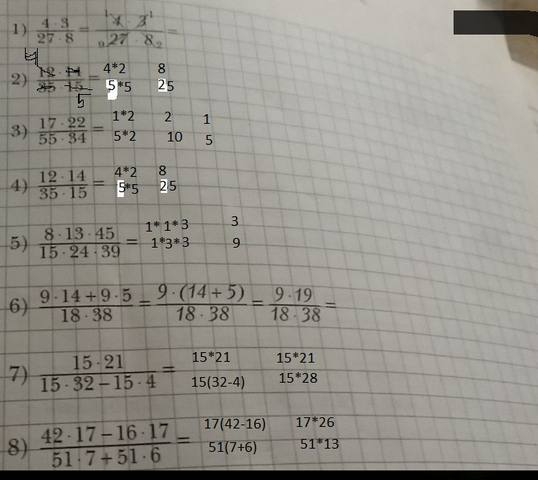 1) 4 · 3 / 27 · 8 = 1 4 · 3 1 / 9 27 · 8 2 =
4
2) 12 · 14 / 35 · 15 = 4*2 / 5*5 8 / 25
5
3) 17 · 22 / 55 · 34 = 1*2 / 5*2 2 / 10 1 / 5
4) 12 · 14 / 35 · 15 = 4*2 / 5*5 8 / 25
5) 8 · 13 · 45 / 15 · 24 · 39 = 1* 1* 3 / 1*3*3 3 / 9
6) 9 · 14 + 9 · 5 / 18 · 38 = 9 · (14 + 5) / 18 · 38 = 9 · 19 / 18 · 38 =
7) 15 · 21 / 15 · 32 – 15 · 4 = 15*21 / 15(32-4) 15*21 / 15*28
8) 42 · 17 – 16 · 17 / 51 · 7 + 51 · 6 = 17(42-16) / 51(7+6) 17*26 / 51*13